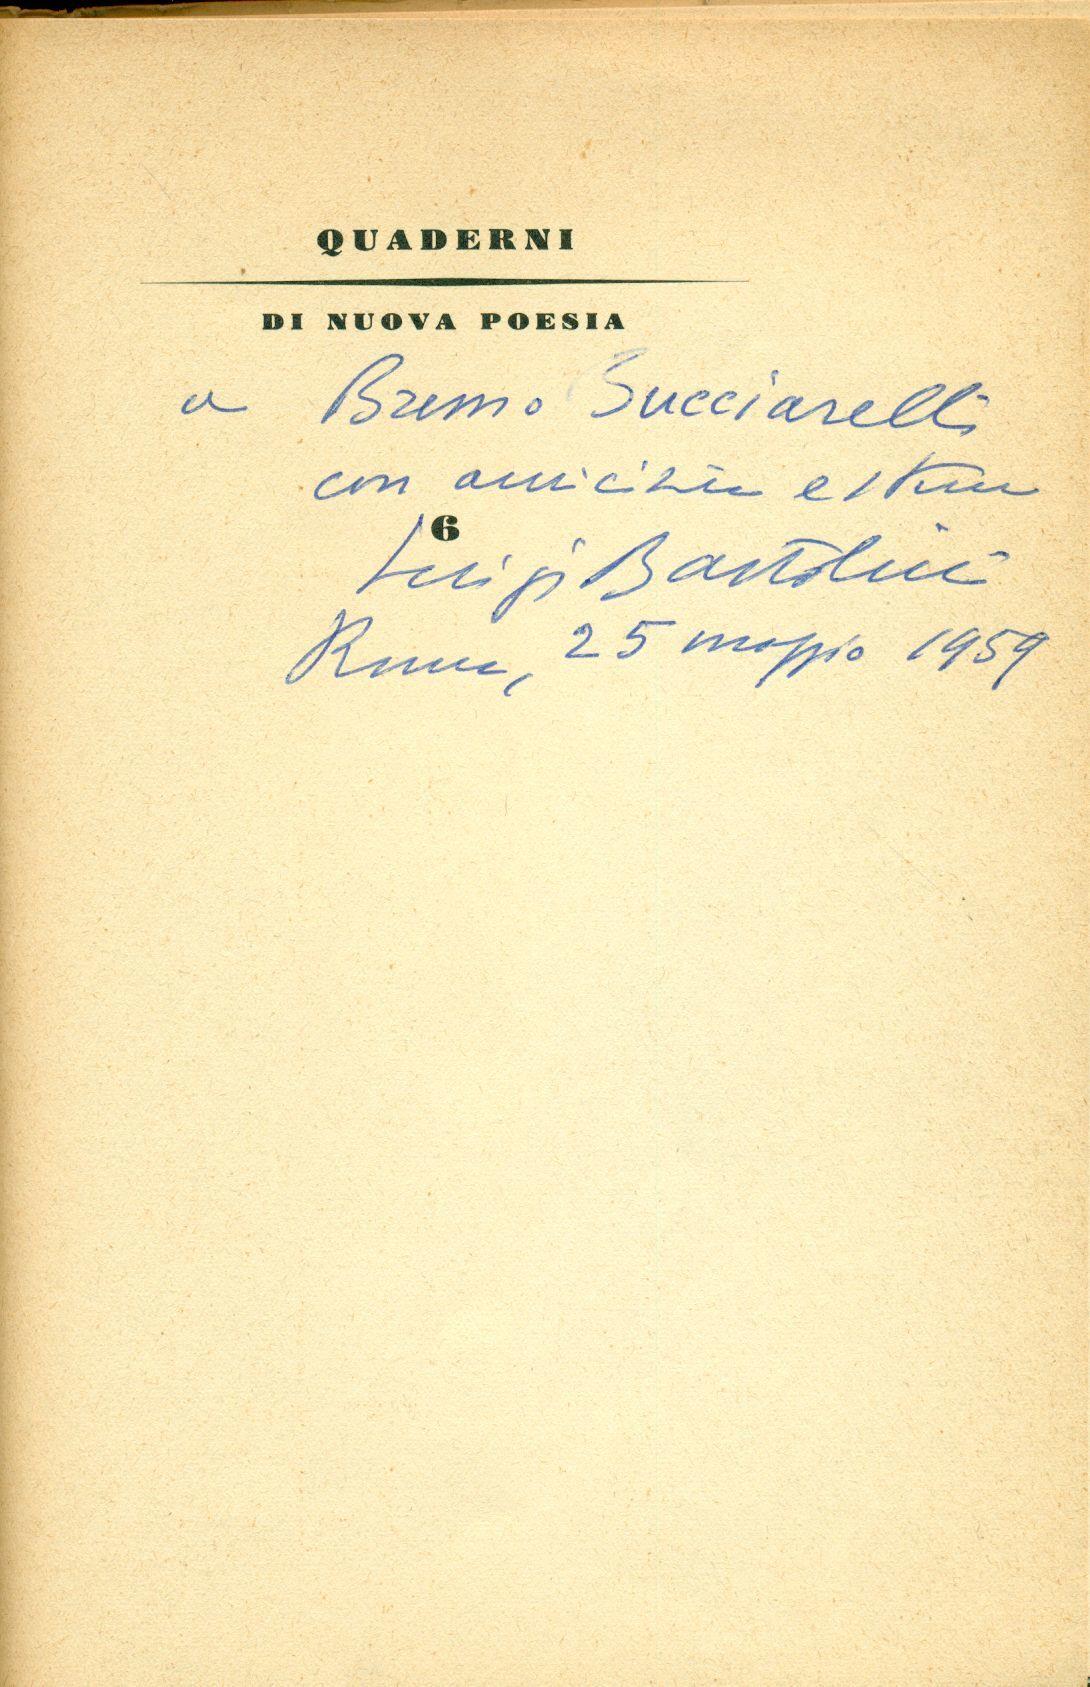 QUADERNI
DI NUOVA POESIA
a Bruno Succiarelli
con amicizia e stima
6
Luigi Bartolini
Roma, 25 maggio 1959